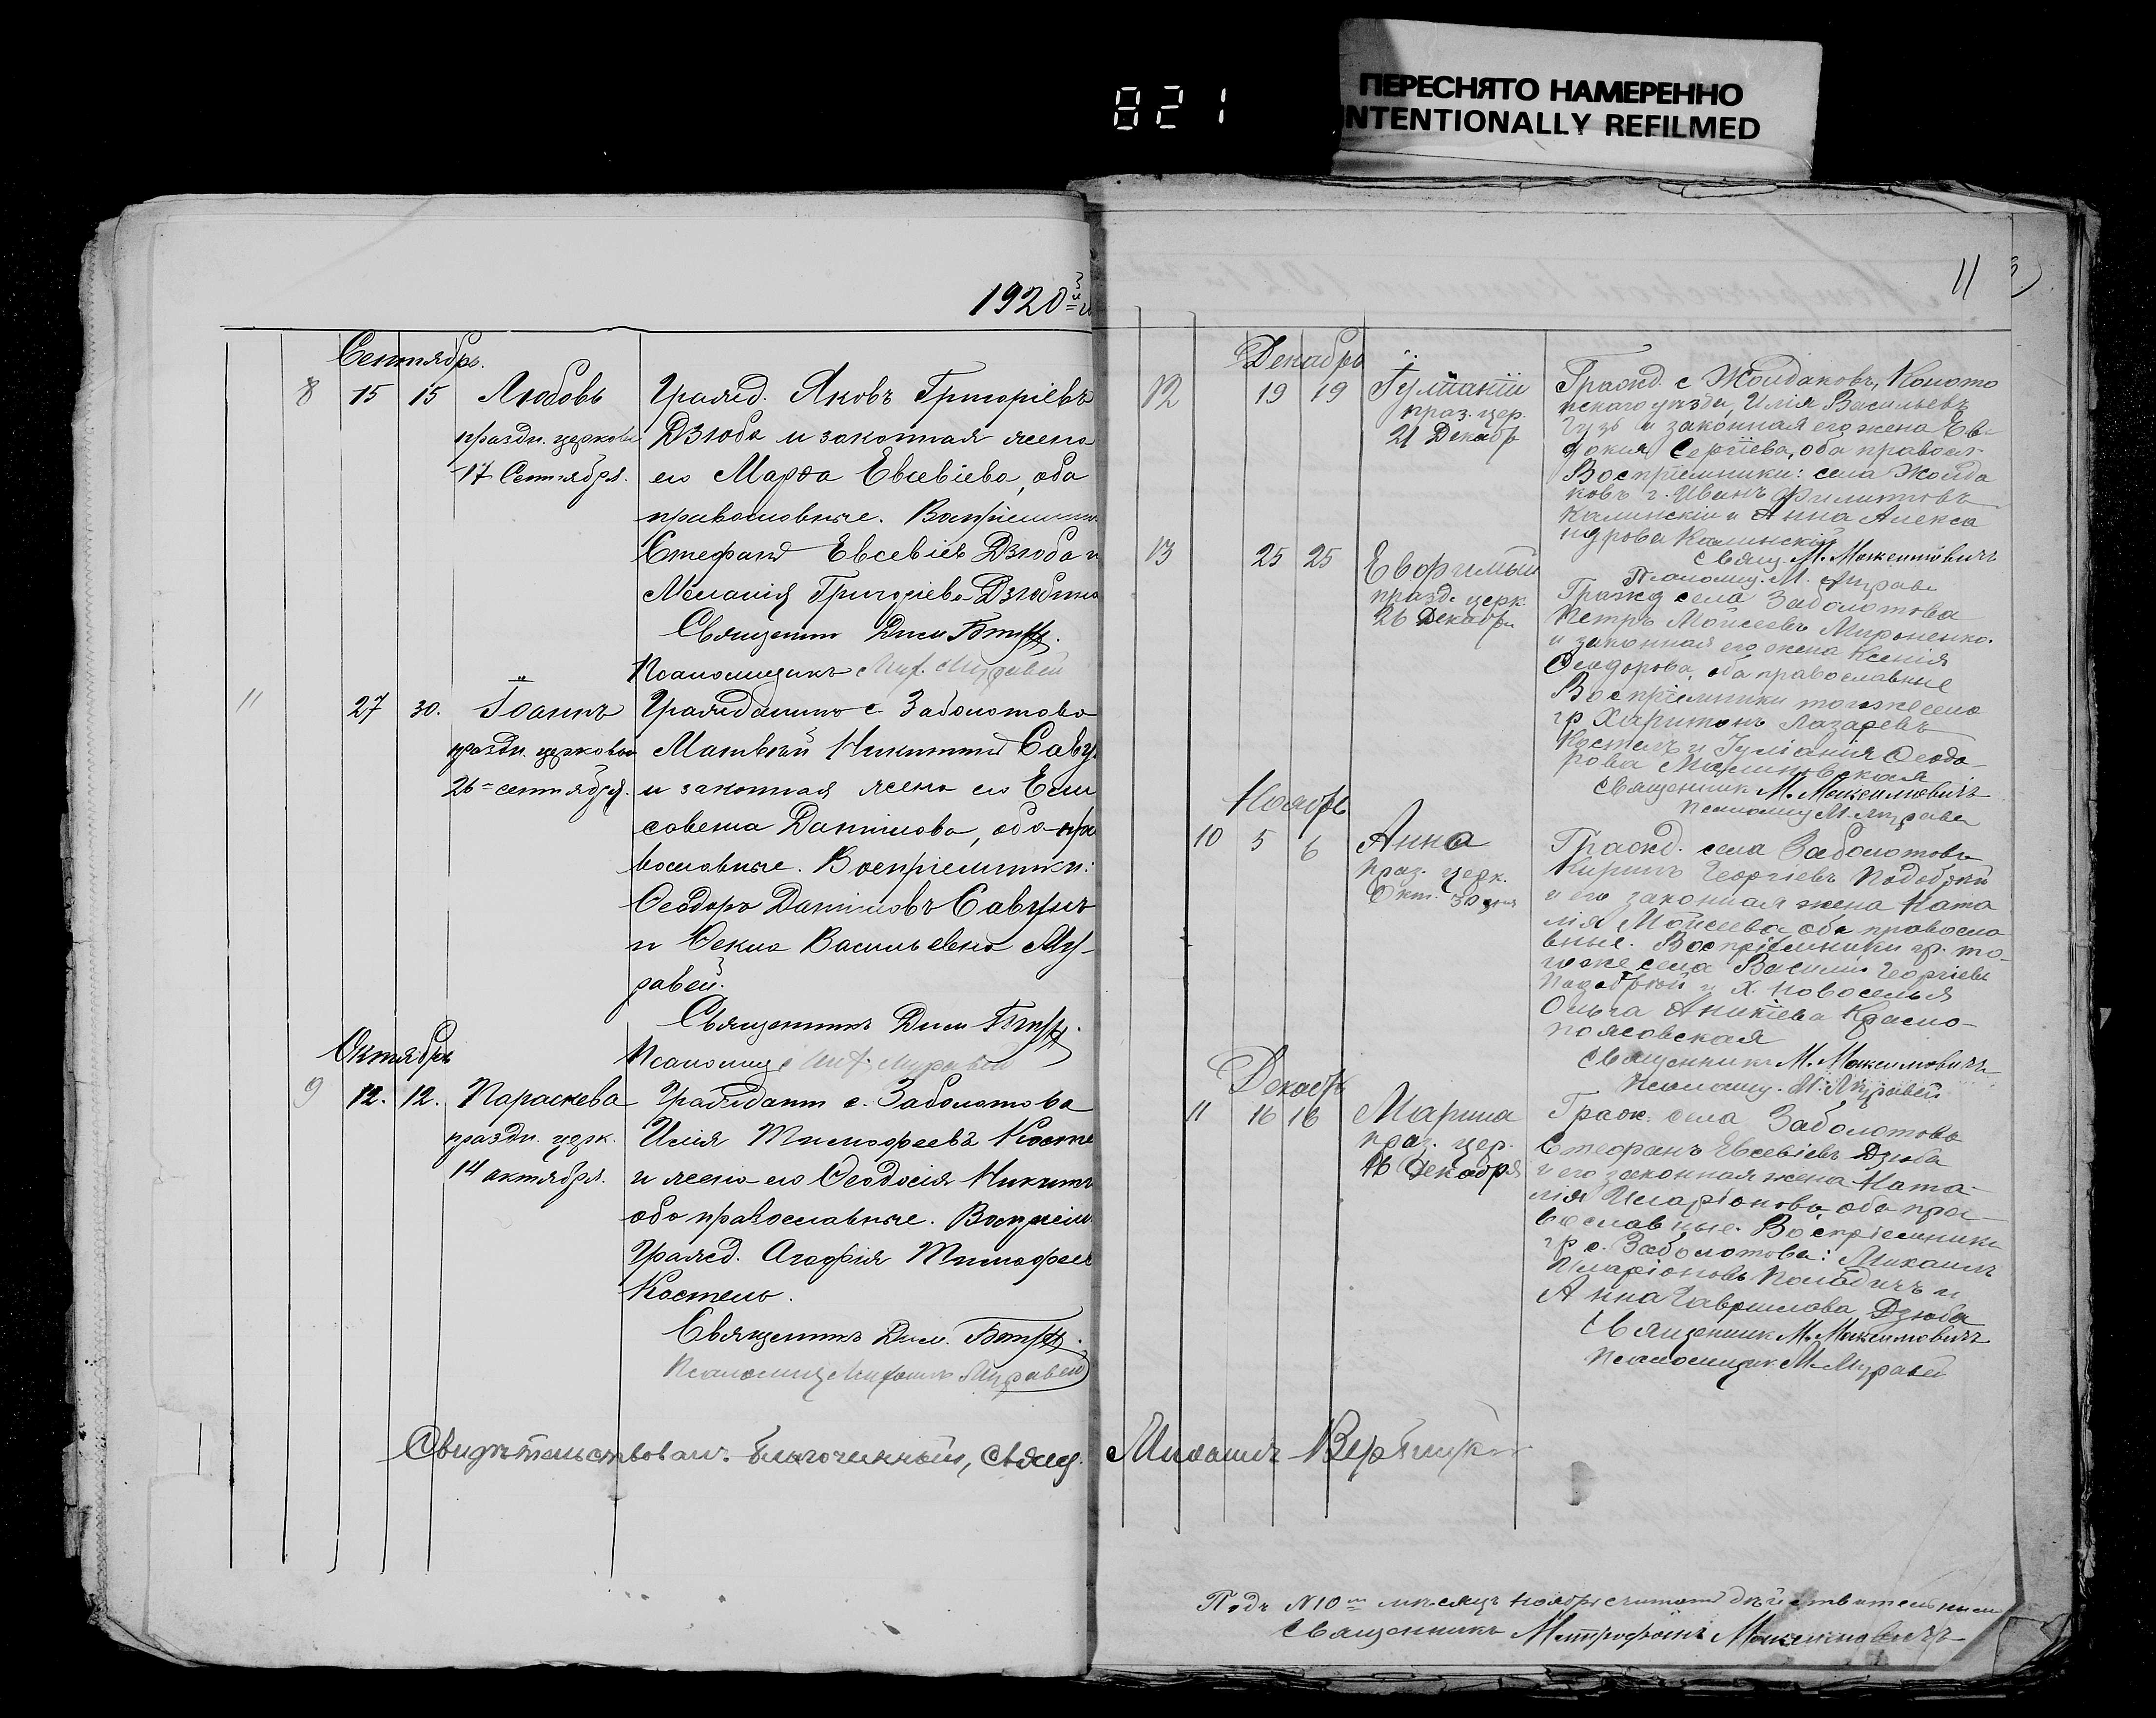 821
ПЕРЕСНЯТО НАМЕРЕННО
INTENTIONALLY REFILMED
1920
Сентябрь.
8 15 15 Любовь
праздн. церковь
17 Сентября.
Гражд. Яковъ Григоріевъ
Дзюба и законная жена
его Марѳа Евсевіева, оба
православные. Воспріемники
Стефанъ Евсевіевъ Дзюба и
Меланія Григоріева Дзюбина
Священникъ Дим.
Псаломщикъ Мит. Муравей
11 27 30. Іоаннъ
праздн. церковью
26 сентября.
Гражданинъ с Заболотова
Матвѣй Никитинъ Савр
и законная жена его Ели
савета Даниилова, оба пра
вославные. Воспріемники:
Ѳеодоръ Данииловъ Савунъ
и Ѳекла Васильевна Му-
равей.
Священникъ Дим.
Псаломщ. Мит. Муравей
Октябрь
9 12. 12. Параскева
праздн. церк.
14 октября.
Гражданинъ с. Заболотова
Илія Тимофеевъ Косте
и жена его Ѳеодосія Никит
оба православные. Воспріем
Гражд. Агафія Тимофее
Костель.
Священникъ Дим.
Псаломщ Муравей
Свидѣтельствовалъ благочинный, свящ. Михаилъ Вербицкій
11
Декабрь
12 19 19 Іуліаній
праз. цер.
21 Декабр
Гражд. с Жолдаковъ, Коното
пскаго уезда, Илія Васильевъ
Гузь и законная его жена Ев-
докия Сергіева, оба правосл.
Воспріемники: села Жолда
ковъ г. Иванъ Филипповъ
Калинскій и Анна Алекса
ндрова Калинскій
Свящ М. Максимовичъ
Псаломщ. М. Мурав
13 25 25 Евфимій
празд. церк.
26 Декабря
Гражд села Заболотова
Петръ Мойсеевъ Мироненко.
и законная его жена Ксенія
Ѳеодорова, оба православные
Воспріемники тогоже села
гр Харитонъ Лазаревъ
Костель и Іуліанія Ѳеодо-
рова Малиновская
Священник М. Максимовичъ
Псаломщ М. Муравей
Ноябрь
10 5 6 Анна
праз. церк.
Окт. 30 дня
Гражд. села Заболотова
Кирилъ Георгіевъ Подобный
и его законная жена Ната
лія Мойсеева оба правосла
вные. Воспріемники гр. то-
гоже села Василій Георгіевъ
Подобный и х. Новоселья
Ольга Аникіева Красно-
поясовская
Священникъ М. Максимовичъ
Псаломщ. М. Муравей
Декабрь
11 16 16 Марина
праз. цер.
16 Декабря
Граж. села Заболотова
Стефанъ Евсевіевъ Дзюба
и его законная жена Ната-
лія Иларіонова, оба пра-
вославные. Воспріемники
гр с. Заболотова: Михаилъ
Иларіоновъ и
Анна Гаврилова Дзюба
Священник М. Максимовичъ
Псаломщик М. Муравей
Подъ N 10 мѣсяцъ ноябрь считать дѣйствительнымъ
Священникъ Митрофанъ Максимовичъ